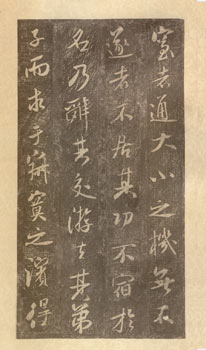 室者通大小之機無不
遂者不居其功不宿於
名乃辭其交游去其弟
子而求于寂寞之濱得